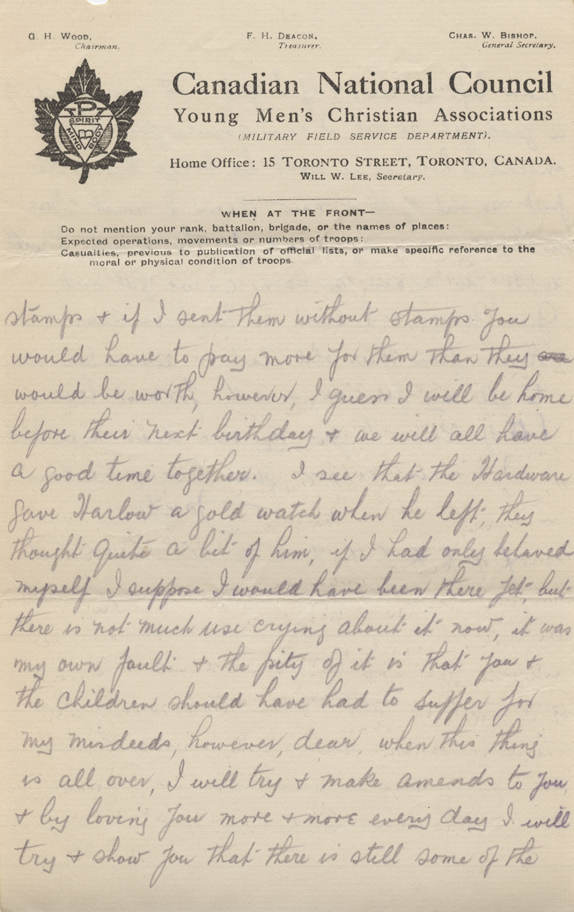 G. H. Wood,
Chairman.
F. H. Deacon,
Treasurer.
Chas. W. Bishop,
General Secretary.
SPIRIT
MIND
BODY
Canadian National Council
Young Men's Christian Associations
(MILITARY FIELD SERVICE DEPARTMENT).
Home Office: 15 TORONTO STREET, TORONTO, CANADA.
WILL W. LEE, Secretary.
WHEN AT THE FRONT—
Do not mention your rank, battalion, brigade, or the names of places:
Expected operations, movements or numbers of troops:
Casualties, previous to publication of official lists, or make specific reference to the
moral or physical condition of troops.
stamps & if I sent them without stamps you
would have to pay more for them than they
would be worth, however, I guess I will be home
before their next birthday & we will all have
a good time together. I see that the Hardware
gave Harlow a gold watch when he left, they
thought quite a bit of him, if I had only behaved
myself I suppose I would have been there yet, but
there is not much use crying about it now, it was
my own fault & the pity of it is that you &
the children should have had to suffer for
my misdeeds, however, dear, when this thing
is all over, I will try & make amends to you
& by loving you more & more every day I will
try & show you that there is still some of the